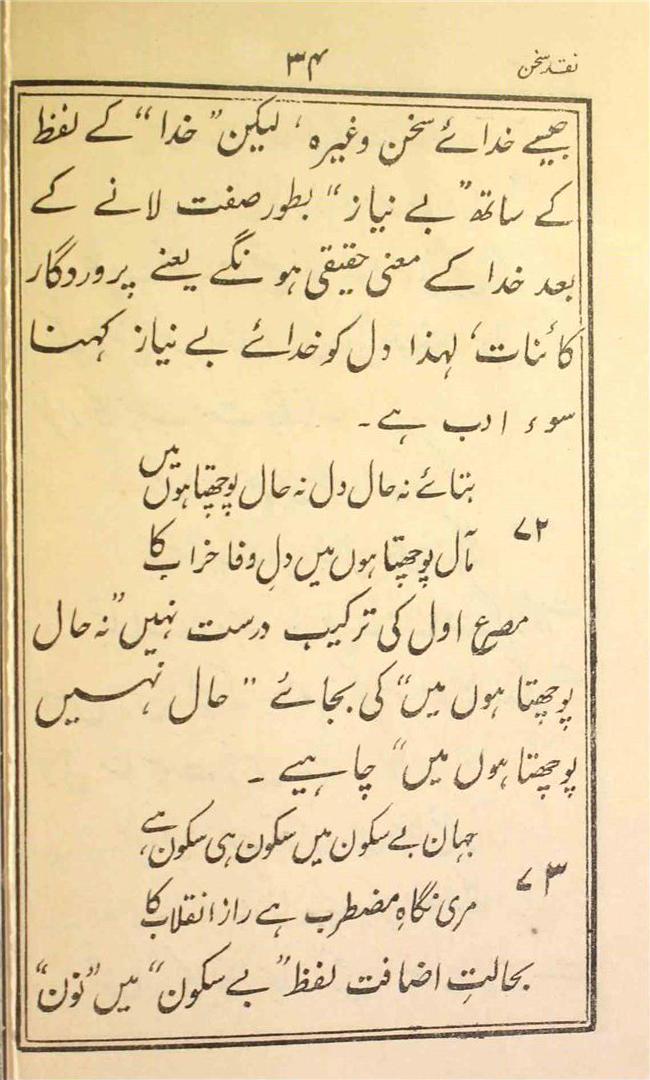 نقد سخن
۳۴
جیسے خدائے سخن وغیرہ، لیکن "خدا" کے لفظ
کے ساتھ "بے نیاز" بطور صفت لانے کے
بعد خدا کے معنی حقیقی ہونگے یعنے پروردگار
کائنات، لہذا دل کو خدائے بے نیاز کہنا
سوء ادب ہے۔
بتائے نہ حال دل نہ حال پوچھتا ہوں میں
۷۲
مآل پوچھتا ہوں میں دلِ وفا خراب کا
مصرع اول کی ترکیب درست نہیں "نہ حال
پوچھتا ہوں میں" کی بجائے "حال نہیں
پوچھتا ہوں میں" چاہیے۔
جہان بے سکون میں سکون ہی سکون ہے،
۷۳
مری نگاہِ مضطرب ہے راز انقلاب کا
بحالتِ اضافت لفظ "بے سکون" میں "نون"